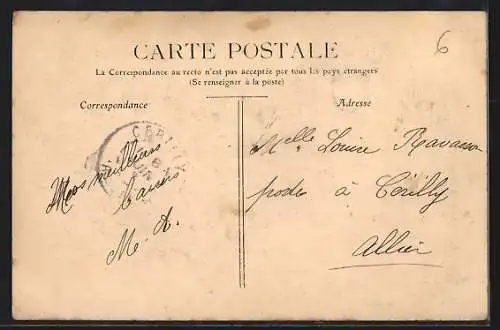 6
CARTE POSTALE
La Correspondance au recto n'est pas acceptée par tous les pays étrangers
(Se renseigner à la poste)
Correspondance
Adresse
CERILLY
Mes meilliers
baisers
M. A.
Melle Louise Ravasson
poste à Cérilly
Allier